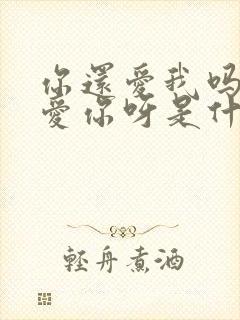 你還愛我嗎
愛你呀是什
輕舟煮酒